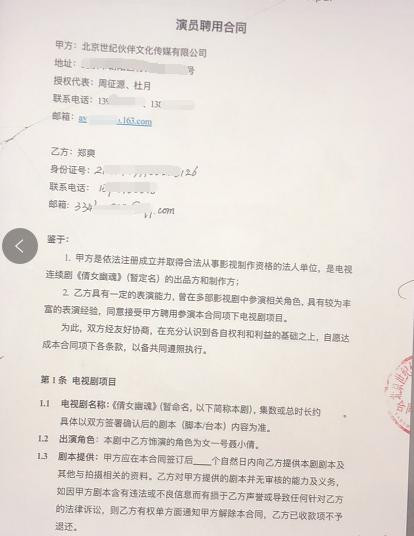 演员聘用合同
甲方：北京世纪伙伴文化传媒有限公司
地址： 号
授权代表：周征源、杜月
联系电话：139 、130
邮箱：ay .163.com
乙方：郑爽
身份证号：2 126
联系电话：
邮箱：334 .com
鉴于：
1. 甲方是依法注册成立并取得合法从事影视制作资格的法人单位，是电视
连续剧《倩女幽魂》（暂定名）的出品方和制作方；
2. 乙方具有一定的表演能力，曾在多部影视剧中参演相关角色，具有较为丰
富的表演经验，同意接受甲方聘用参演本合同项下电视剧项目。
为此，双方经友好协商，在充分认识到各自权利和利益的基础之上，自愿达
成本合同项下各条款，以备共同遵照执行。
第 1 条 电视剧项目
1.1 电视剧名称：《倩女幽魂》（暂命名，以下简称本剧），集数或总时长约 。
具体以双方签署确认后的剧本（脚本/台本）内容为准。
1.2 出演角色：本剧中乙方饰演的角色为女一号聂小倩。
1.3 剧本提供：甲方应在本合同签订后____个自然日内向乙方提供本剧剧本及
其他与拍摄相关的资料。乙方对甲方提供的剧本并无审核的能力及义务，
如因甲方剧本含有违法或不良信息而有损于乙方声誉或导致任何针对乙方
的法律诉讼，则乙方有权单方面通知甲方解除本合同，乙方已收款项不予
退还。